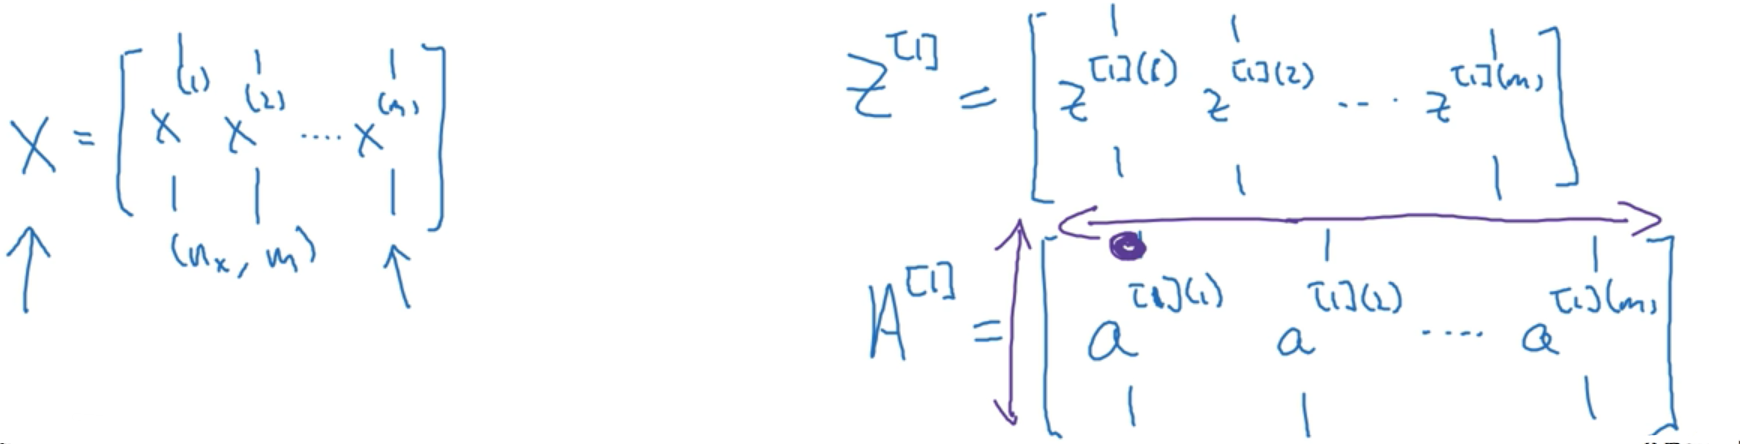 X = [ x^(1) x^(2) .... x^(m) ]
(n_x, m)
Z^[1] = [ z^[1](1) z^[1](2) ... z^[1](m) ]
A^[1] = [ a^[1](1) a^[1](2) .... a^[1](m) ]